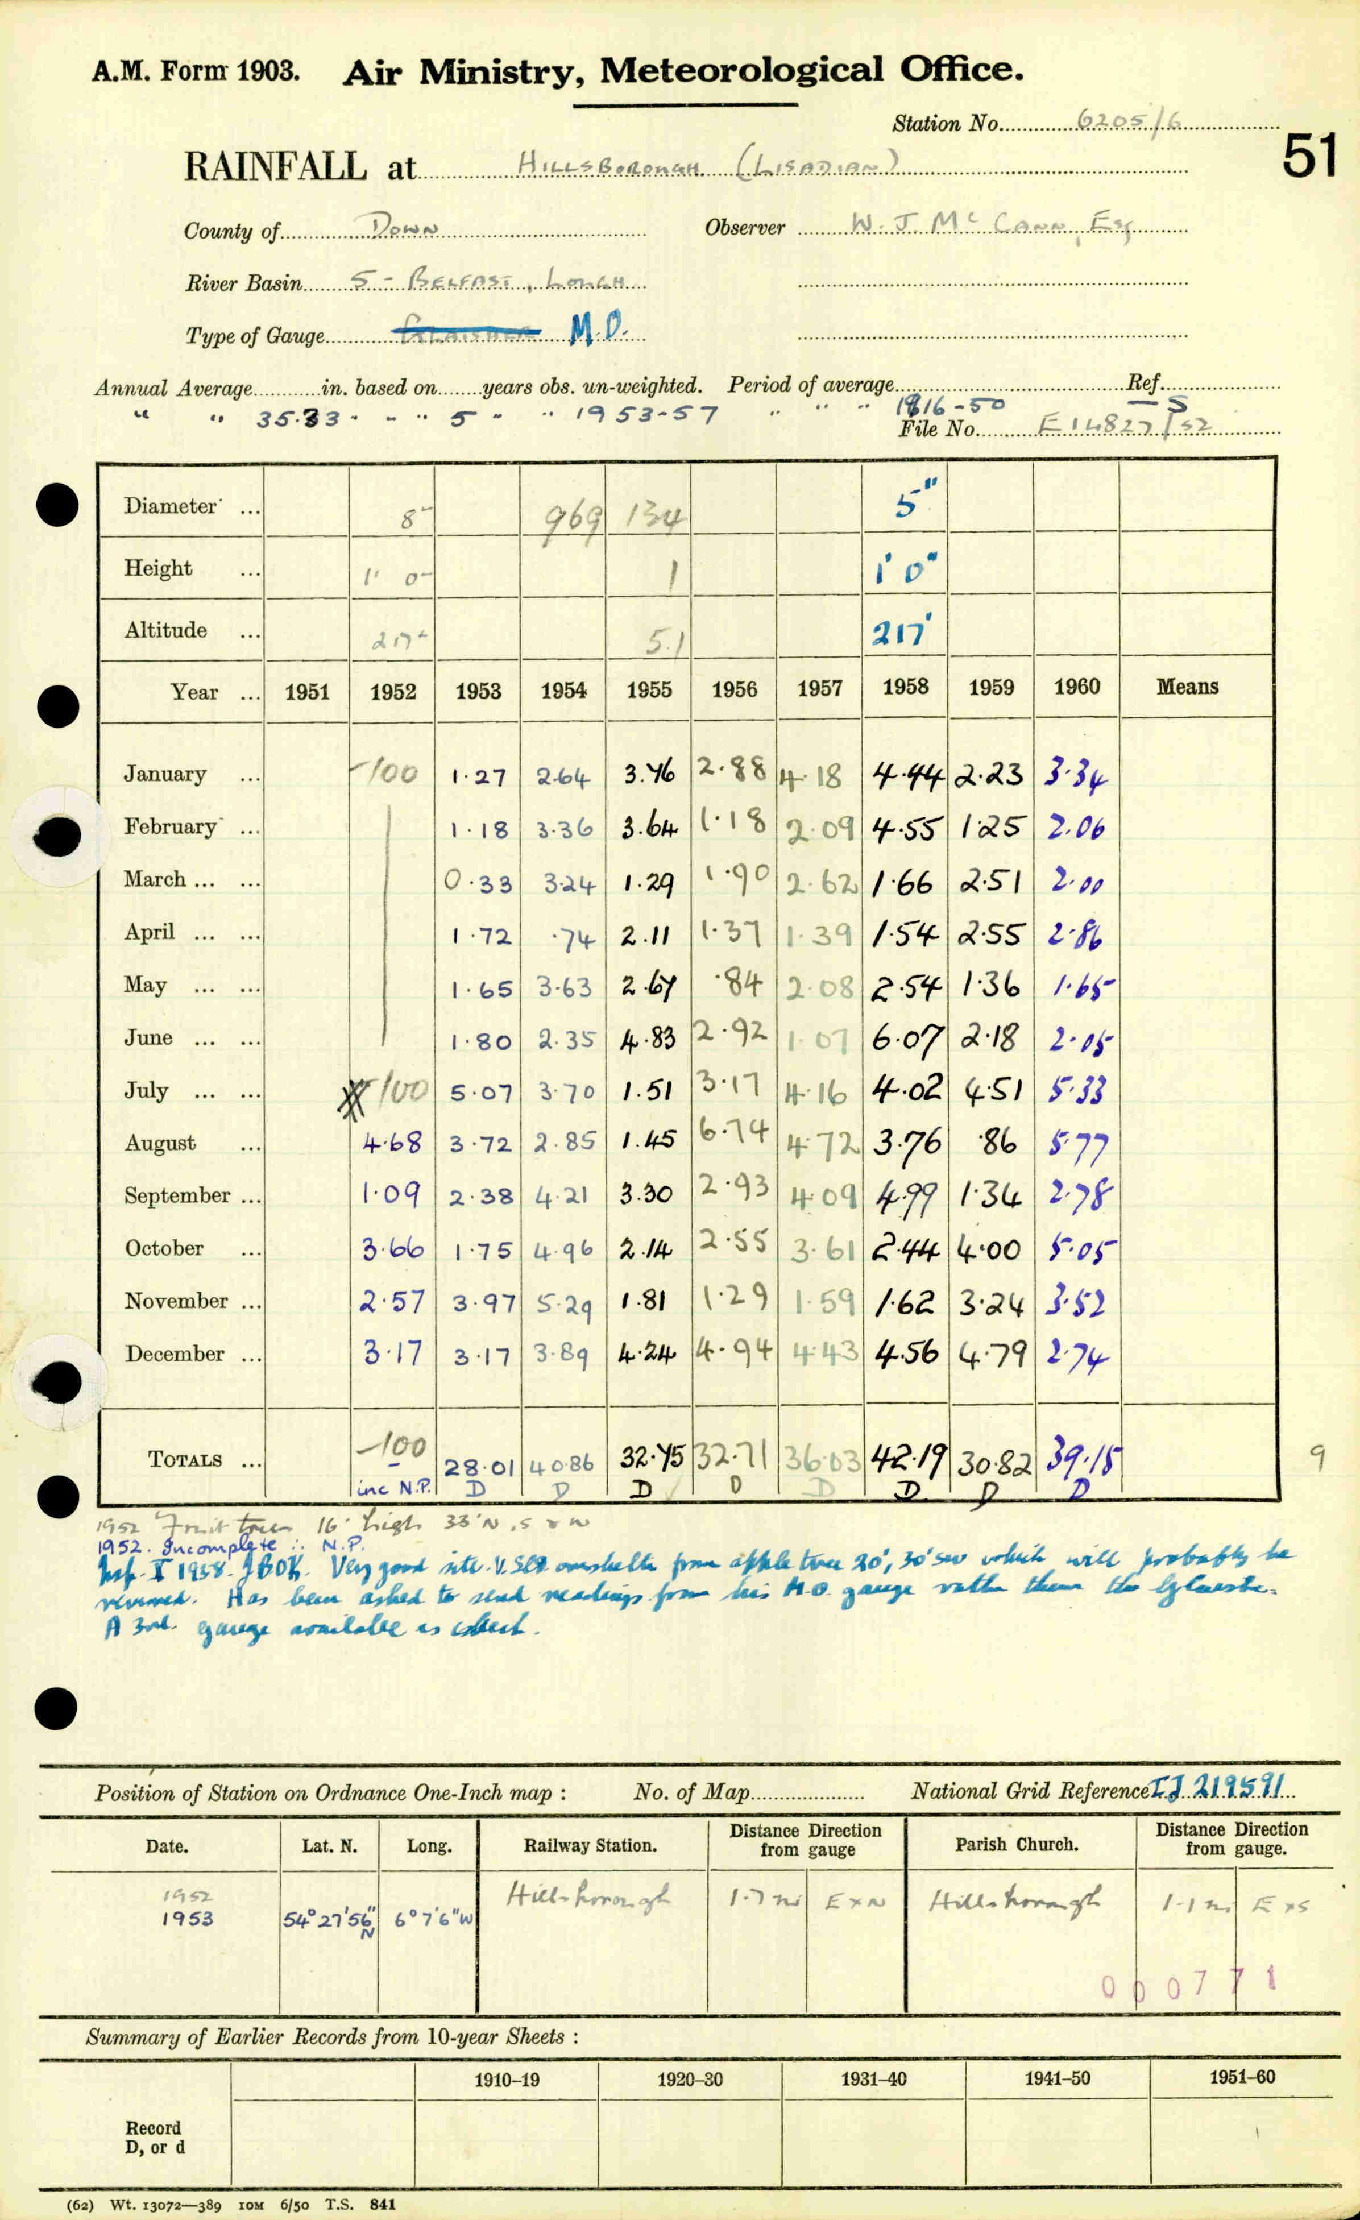 A.M. Form 1903. Air Ministry, Meteorological Office.
Station No. 6205/6
51
RAINFALL at HILLSBOROUGH (LISADIAN)
County of DOWN Observer W. J. McCANN, Esq
River Basin 5 - BELFAST, LOUGH
Type of Gauge GLAISHER M.O.
Annual Average in. based on years obs. un-weighted. Period of average Ref.
" " 35.33 " " " 5 " " 1953-57 " " " 1916-50 — S
File No. E14827/52
Diameter ... 8" 969 134 5"
Height ... 1' 0" 1 1' 0"
Altitude ... 217' 51 217'
Year ... 1951 1952 1953 1954 1955 1956 1957 1958 1959 1960 Means
January ... -100 1.27 2.64 3.76 2.88 4.18 4.44 2.23 3.34
February ... 1.18 3.36 3.64 1.18 2.09 4.55 1.25 2.06
March ... ... 0.33 3.24 1.29 1.90 2.62 1.66 2.51 2.00
April ... ... 1.72 .74 2.11 1.37 1.39 1.54 2.55 2.86
May ... ... 1.65 3.63 2.67 .84 2.08 2.54 1.36 1.65
June ... ... 1.80 2.35 4.83 2.92 1.07 6.07 2.18 2.05
July ... ... -100 5.07 3.70 1.51 3.17 4.16 4.02 4.51 5.33
August ... 4.68 3.72 2.85 1.45 6.74 4.72 3.76 .86 5.77
September ... 1.09 2.38 4.21 3.30 2.93 4.09 4.99 1.34 2.78
October ... 3.66 1.75 4.96 2.14 2.55 3.61 2.44 4.00 5.05
November ... 2.57 3.97 5.29 1.81 1.29 1.59 1.62 3.24 3.52
December ... 3.17 3.17 3.89 4.24 4.94 4.43 4.56 4.79 2.74
TOTALS ... -100 28.01 40.86 32.75 32.71 36.03 42.19 30.82 39.15 9
inc N.P. D D D D D D D D
1952 Fruit trees 16' high 33' N, S & W
1952. Incomplete ∴ N.P.
Insp. X 1958. JBOK. Very good site. V. Slt overshelter from apple tree 20', 30' SW which will probably be
removed. Has been asked to send readings from his M.O. gauge rather than the Glaisher.
A 3rd. gauge available as check.
Position of Station on Ordnance One-Inch map : No. of Map National Grid Reference IJ 219591
Date. Lat. N. Long. Railway Station. Distance from gauge Direction Parish Church. Distance Direction from gauge.
1952 Hillsborough 1.7 mi E x N Hillsborough 1.1 mi E x S
1953 54° 27' 56" N 6° 7' 6" W
000771
Summary of Earlier Records from 10-year Sheets :
1910–19 1920–30 1931–40 1941–50 1951–60
Record
D, or d
(62) Wt. 13072—389 10M 6/50 T.S. 841